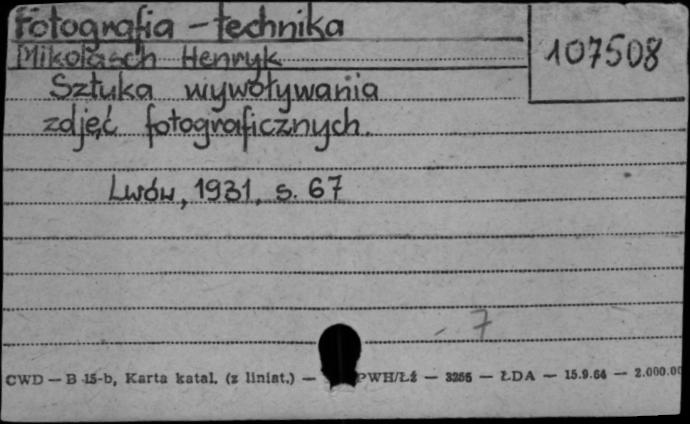 Fotografia - technika
107508
Mikolasch Henryk
Sztuka wywoływania
zdjęć fotograficznych.
Lwów, 1931, s. 67
7
CWD — B 15-b, Karta katal. (z liniat.) — PWH/Łź — 3256 — ŁDA — 15.9.64 — 2.000.00